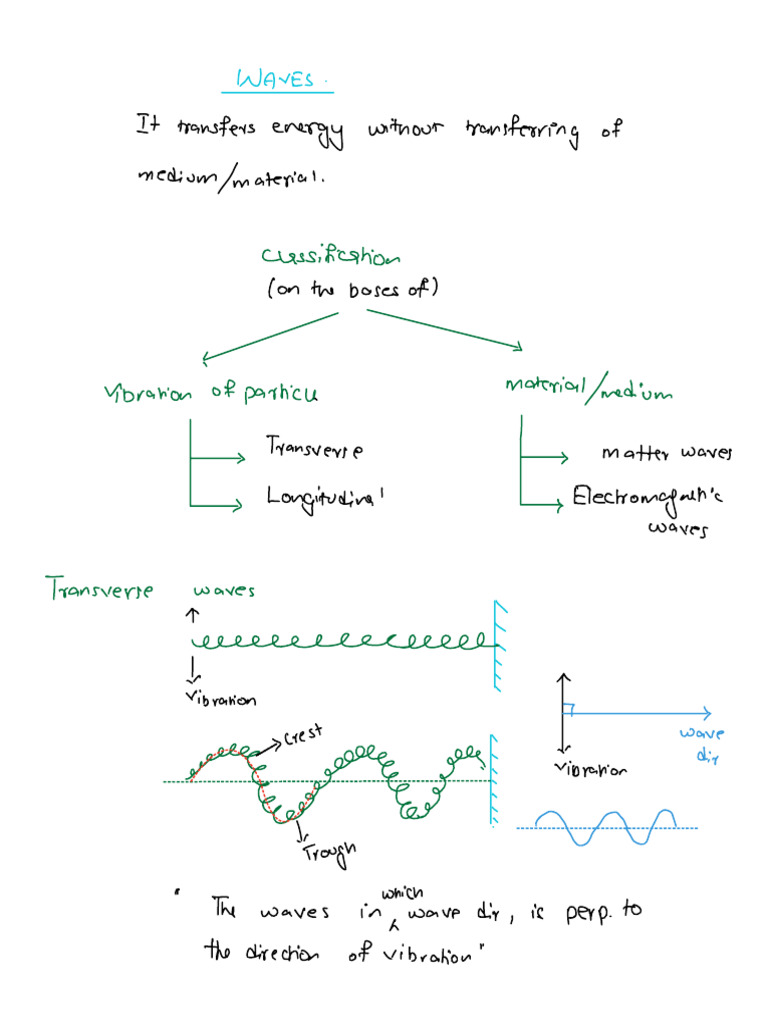 WAVES.
It transfers energy without transferring of
medium/material.
classification
(on the bases of)
Vibration of particle
material/medium
Transverse
matter waves
Longitudinal
Electromagnetic
waves
Transverse waves
Vibration
crest
wave
dir
Vibration
Trough
which
" The waves in wave dir, is perp. to
the direction of vibration"